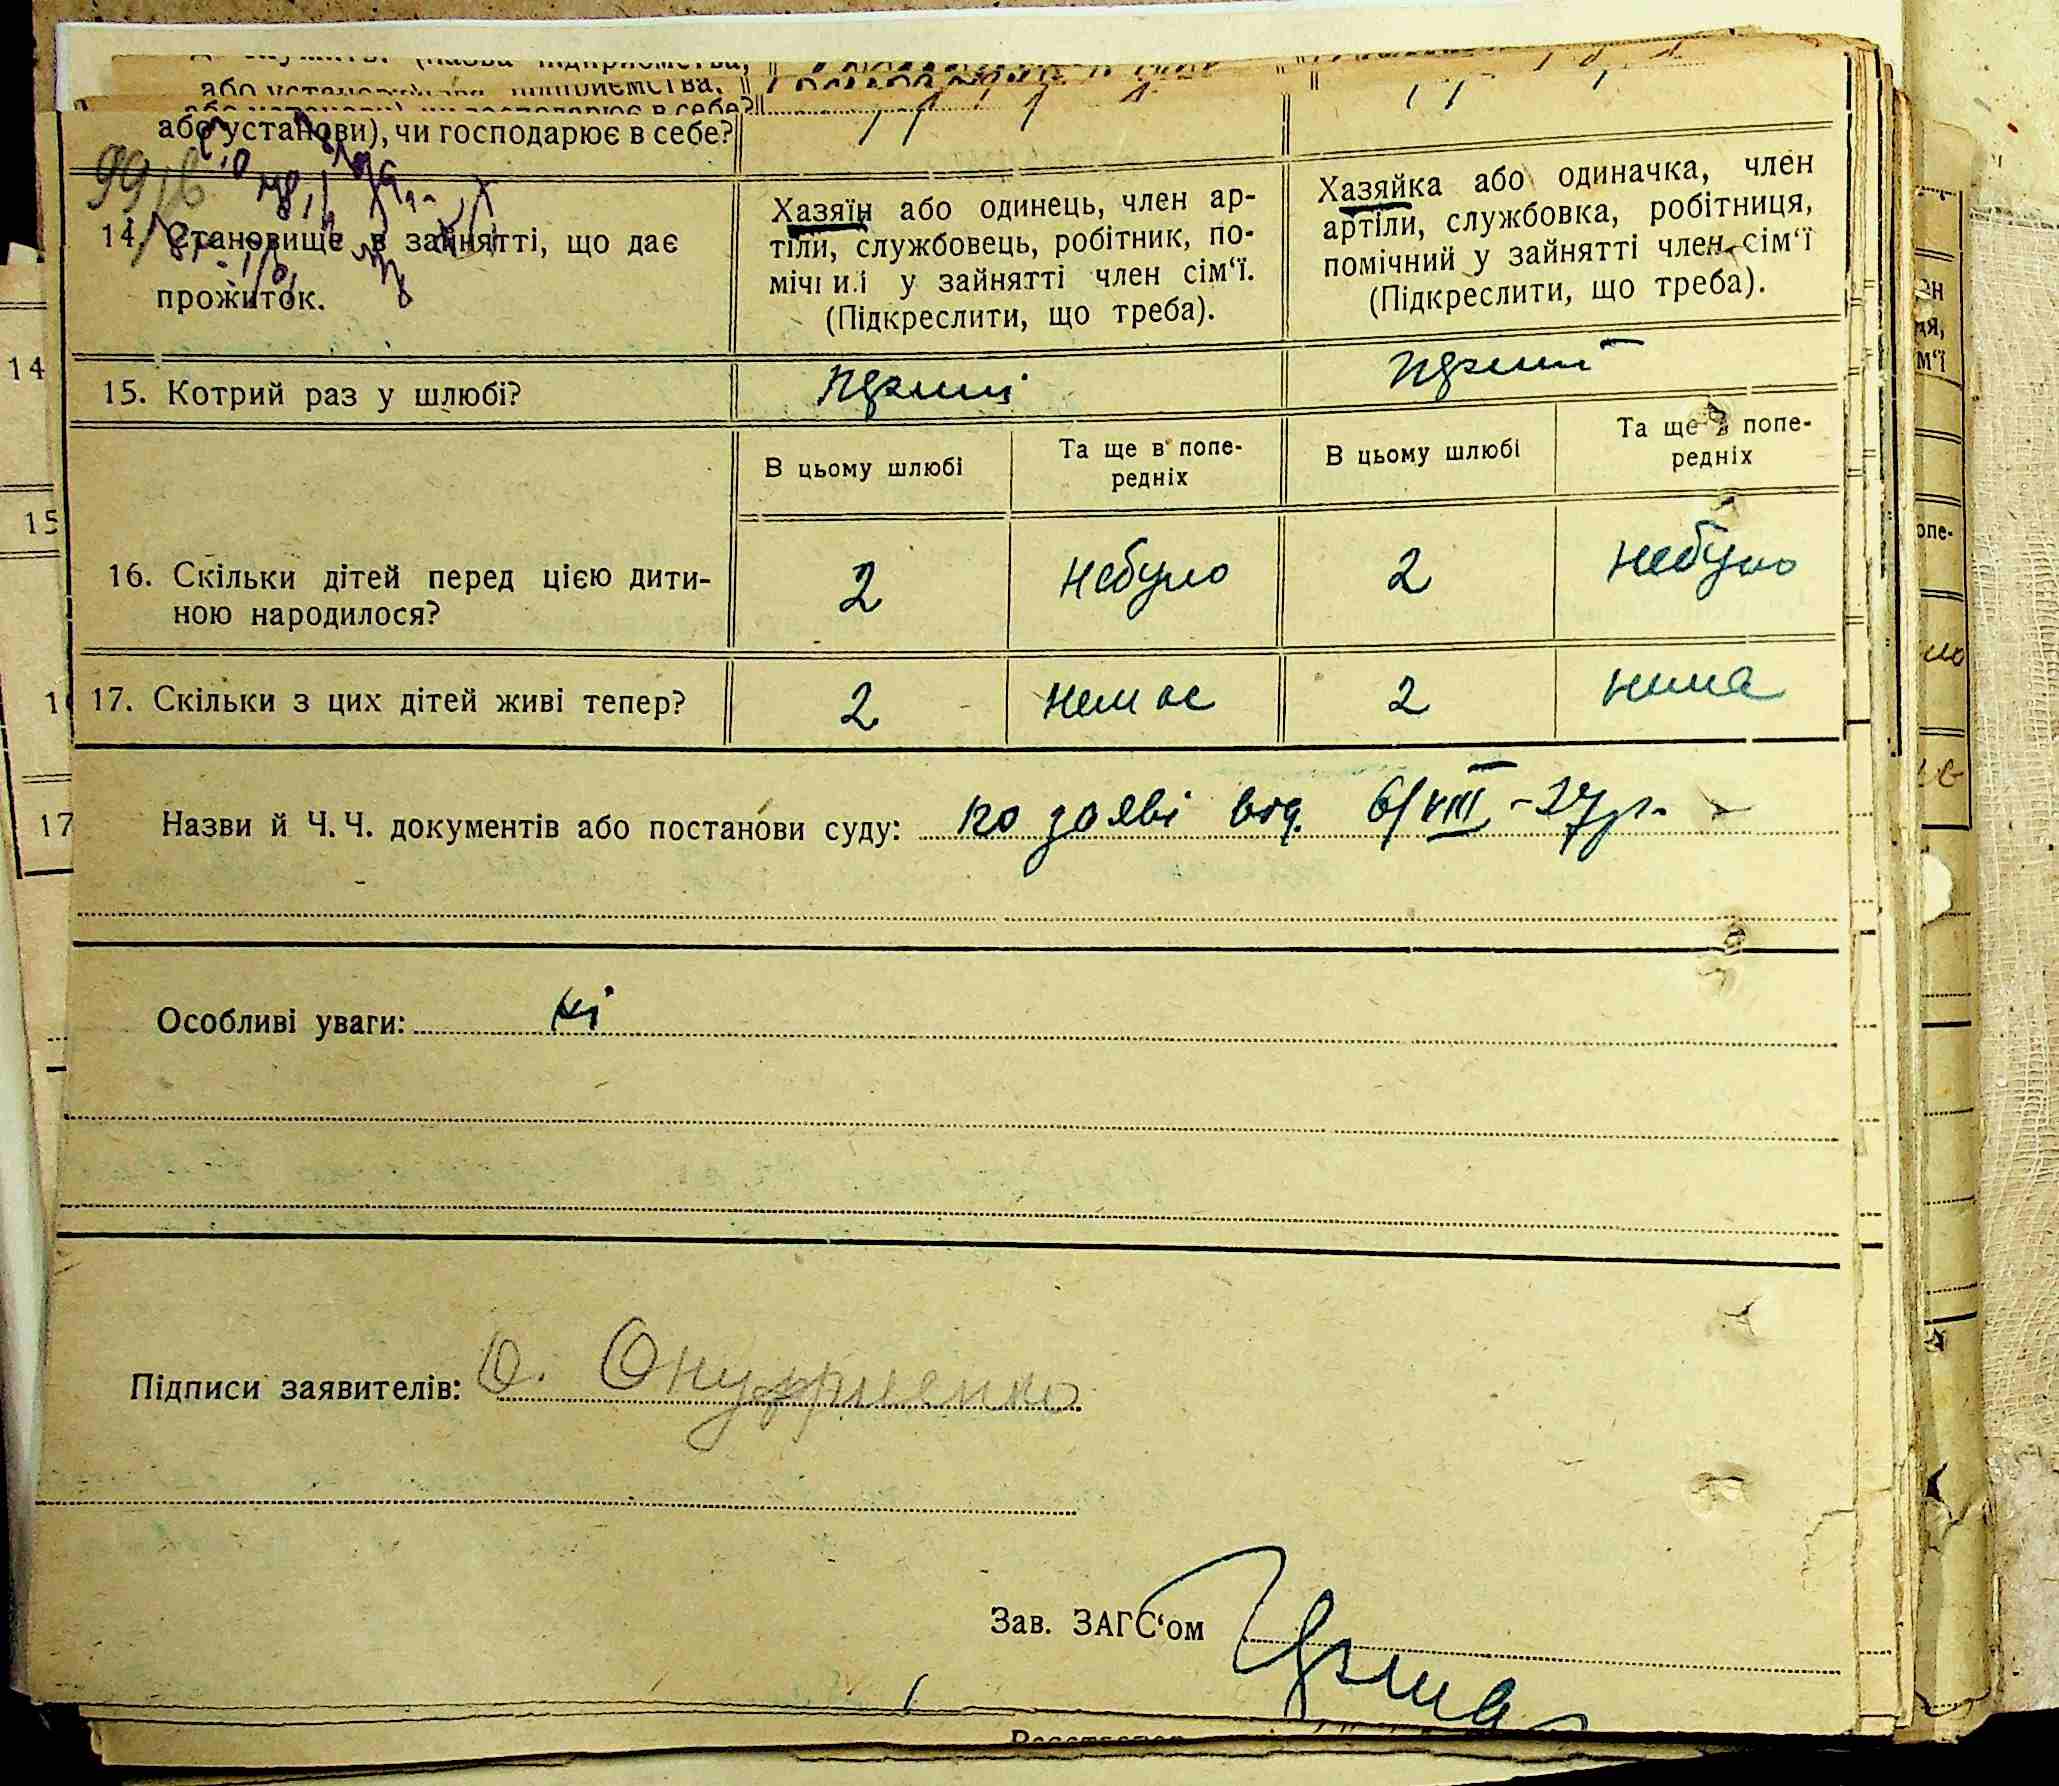 або установи), чи господарює в себе?
14. Становище в зайнятті, що дає
прожиток.
Хазяїн або одинець, член ар-
тіли, службовець, робітник, по-
мічн и.і у зайнятті член сім‘ї.
(Підкреслити, що треба).
Хазяйка або одиначка, член
артіли, службовка, робітниця,
помічний у зайнятті член сім‘ї
(Підкреслити, що треба).
15. Котрий раз у шлюбі?
перший
перший
В цьому шлюбі
Та ще в попе-
редніх
В цьому шлюбі
Та ще в попе-
редніх
16. Скільки дітей перед цією дити-
ною народилося?
2
небуло
2
небуло
17. Скільки з цих дітей живі тепер?
2
немає
2
нима
Назви й Ч. Ч. документів або постанови суду: по заяві від. 6/VIII-27 р.
Особливі уваги: ні
Підписи заявителів: О. Онуфриенко
Зав. ЗАГС‘ом
14
15
17